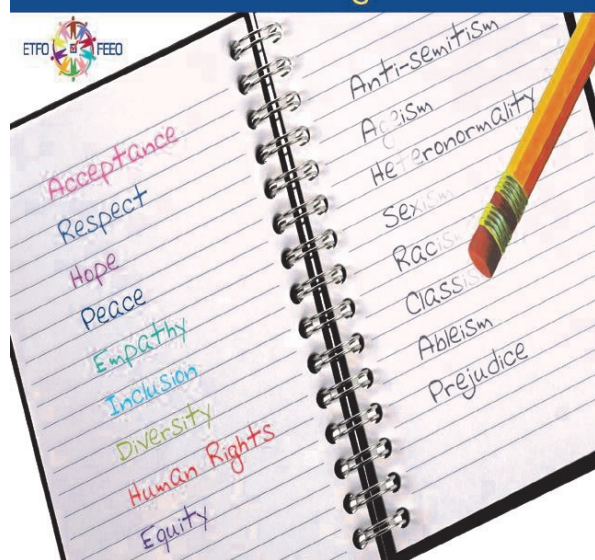 ETFO FEEO
Acceptance
Respect
Hope
Peace
Empathy
Inclusion
Diversity
Human Rights
Equity
Anti-semitism
Ageism
Heteronormality
Sexism
Racism
Classism
Ableism
Prejudice